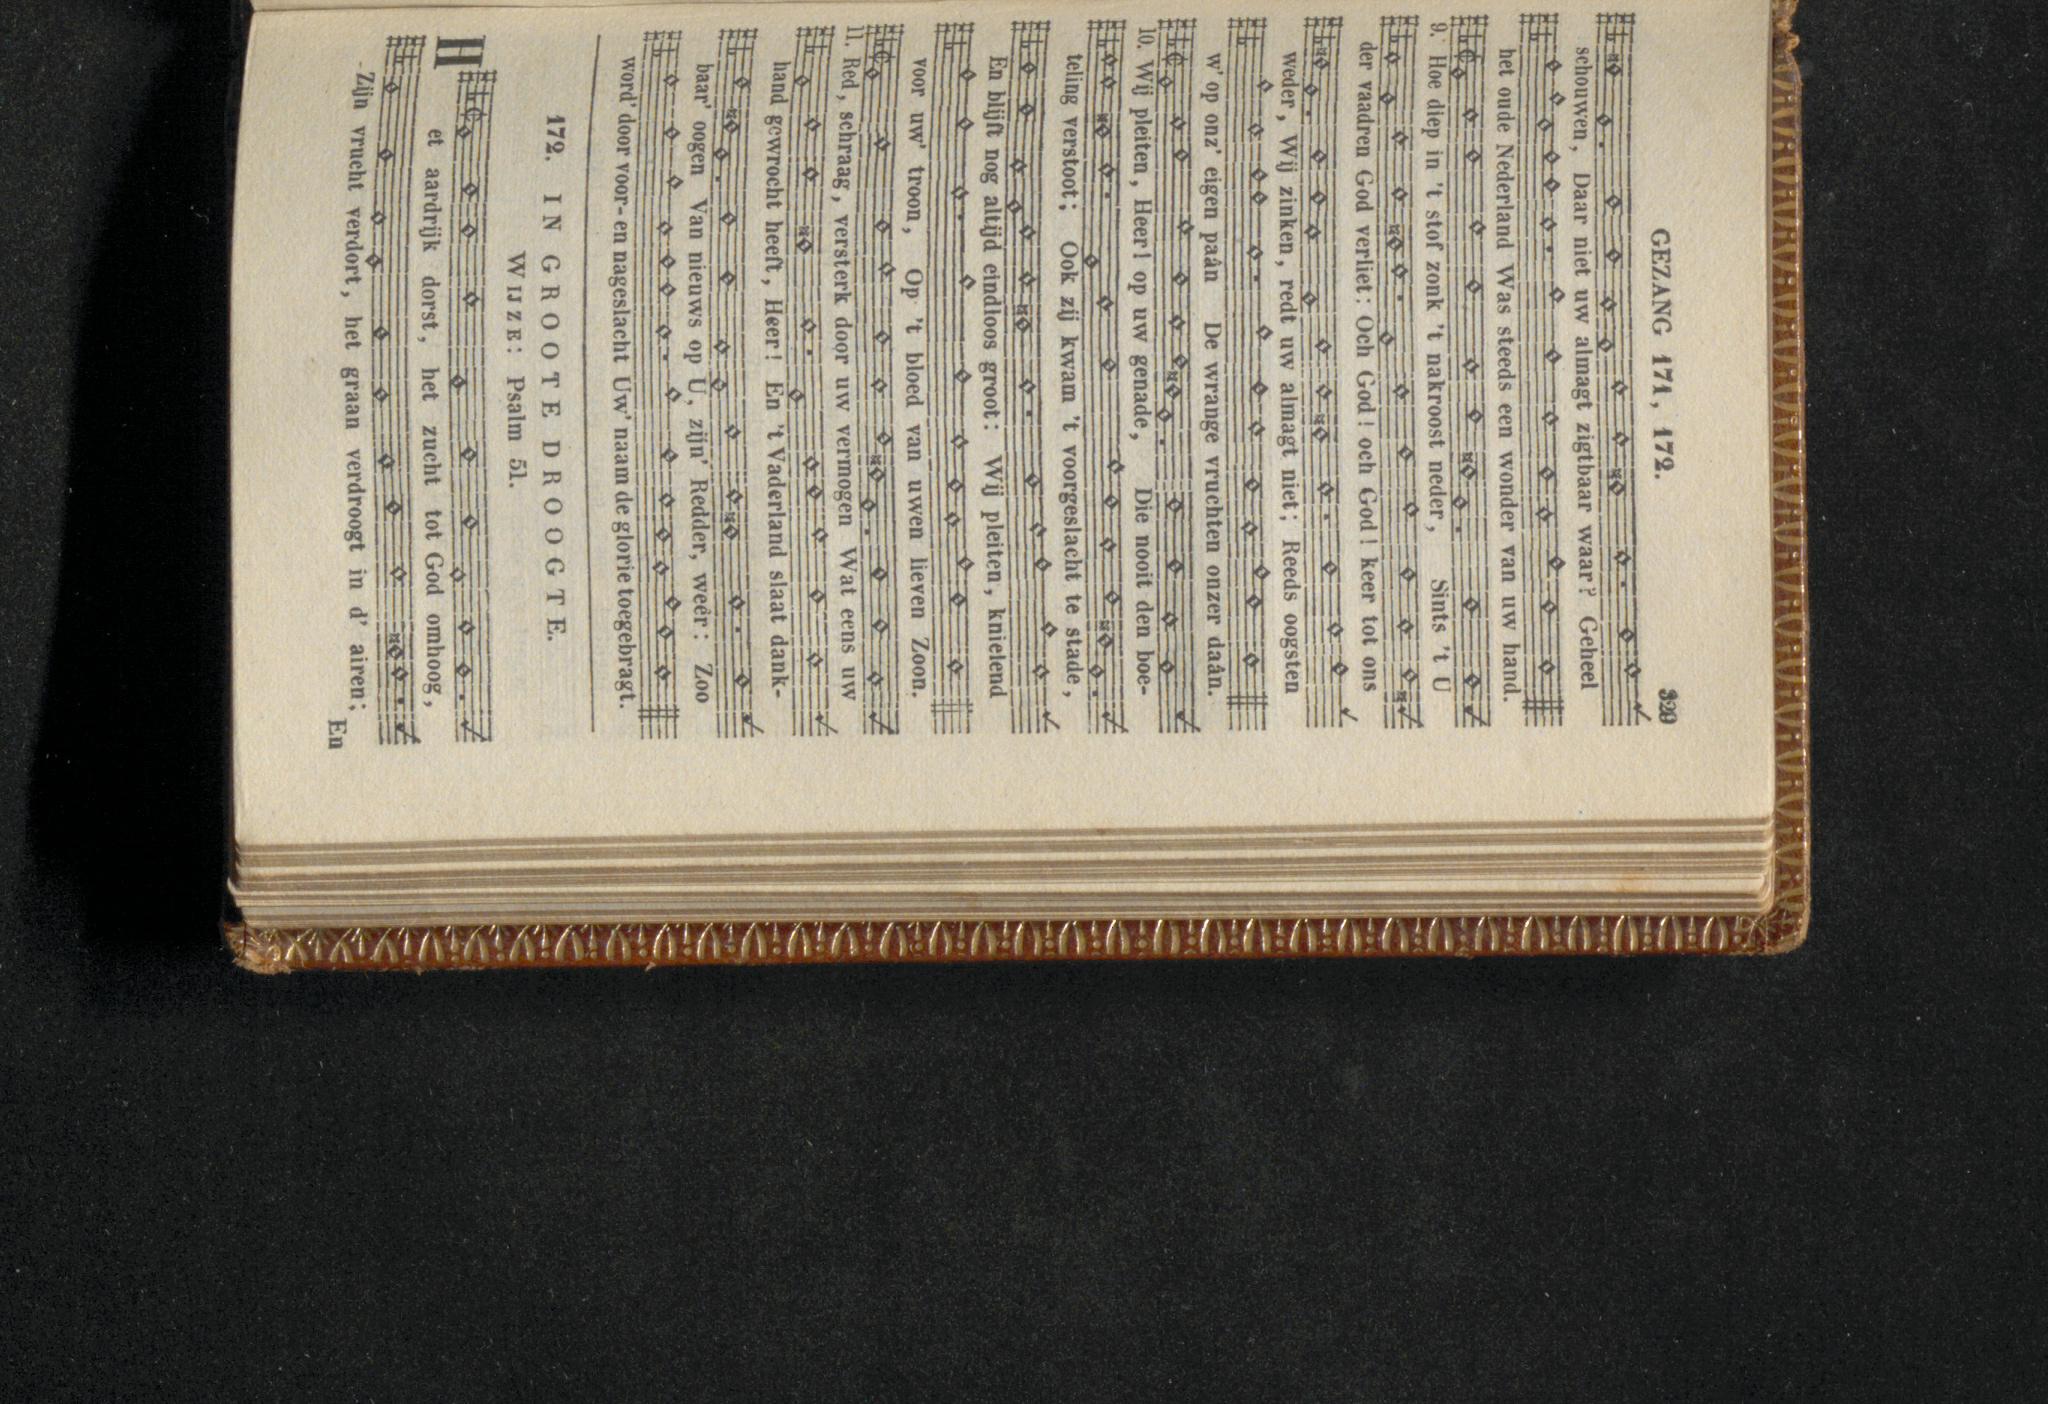 GEZANG 171, 172.
schouwen, Daar niet uw almagt zigtbaar waar? Geheel
het oude Nederland Was steeds een wonder van uw hand.
9. Hoe diep in 't stof zonk 't nakroost neder, Sints 't U
der vaadren God verliet: Och God! och God! keer tot ons
weder, Wij zinken, redt uw almagt niet; Reeds oogsten
w' op onz' eigen paân De wrange vruchten onzer daân.
10. Wij pleiten, Heer! op uw genade, Die nooit den boe-
teling verstoot; Ook zij kwam 't voorgeslacht te stade,
En blijft nog altijd eindloos groot: Wij pleiten, knielend
voor uw' troon, Op 't bloed van uwen lieven Zoon.
11. Red, schraag, versterk door uw vermogen Wat eens uw
hand gewrocht heeft, Heer! En 't Vaderland slaat dank-
baar' oogen Van nieuws op U, zijn' Redder, weêr: Zoo
word' door voor- en nageslacht Uw' naam de glorie toegebragt.
172. IN GROOTE DROOGTE.
WIJZE: Psalm 51.
Het aardrijk dorst, het zucht tot God omhoog,
Zijn vrucht verdort, het graan verdroogt in d' airen;
En